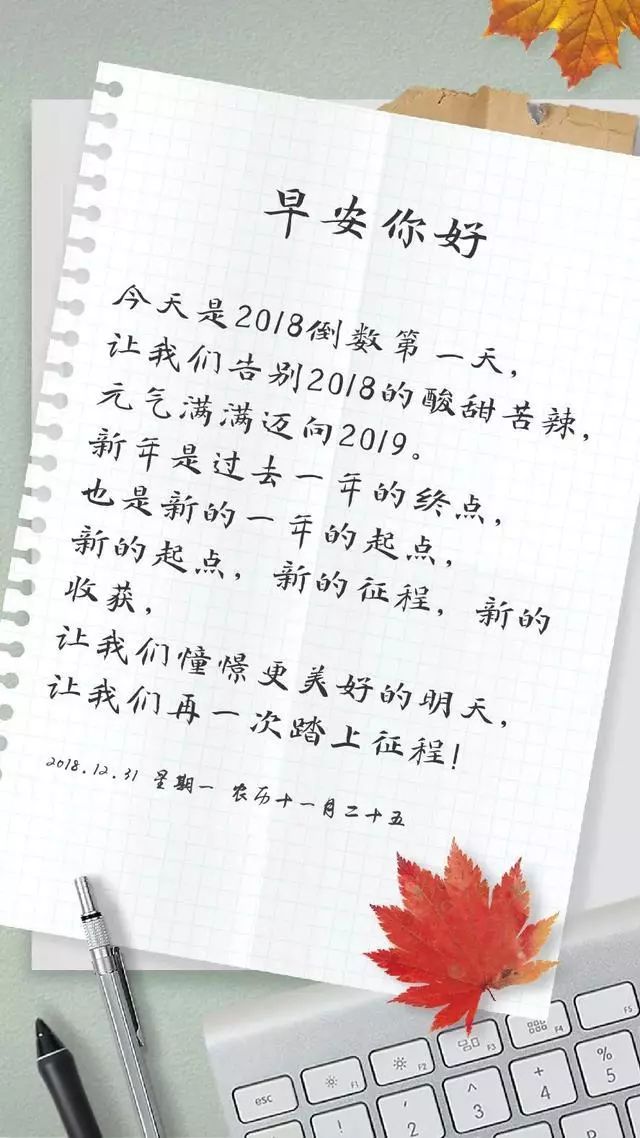 早安你好
今天是2018倒数第一天，
让我们告别2018的酸甜苦辣，
元气满满迈向2019。
新年是过去一年的终点，
也是新的一年的起点，
新的起点，新的征程，新的
收获，
让我们憧憬更美好的明天，
让我们再一次踏上征程！
2018.12.31 星期一 农历十一月二十五
esc
F1
F2
F3
F4
F5
!
1
2
^
3
+
4
%
5